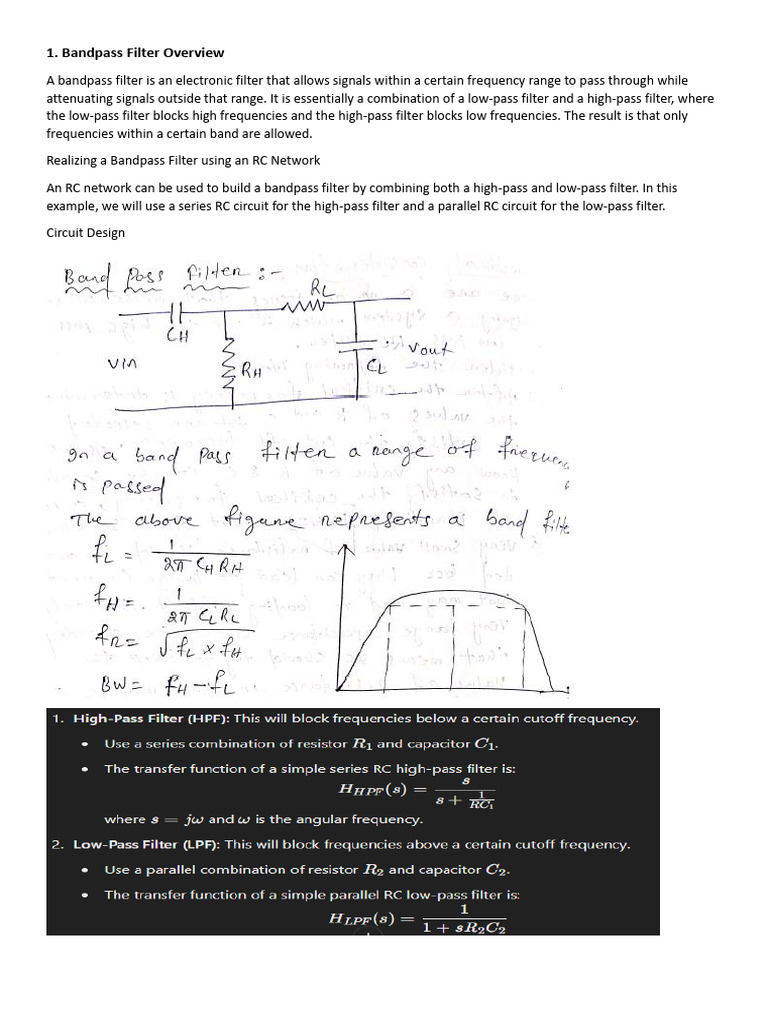 1. Bandpass Filter Overview
A bandpass filter is an electronic filter that allows signals within a certain frequency range to pass through while
attenuating signals outside that range. It is essentially a combination of a low-pass filter and a high-pass filter, where
the low-pass filter blocks high frequencies and the high-pass filter blocks low frequencies. The result is that only
frequencies within a certain band are allowed.
Realizing a Bandpass Filter using an RC Network
An RC network can be used to build a bandpass filter by combining both a high-pass and low-pass filter. In this
example, we will use a series RC circuit for the high-pass filter and a parallel RC circuit for the low-pass filter.
Circuit Design
Band Pass Filter :-
RL
CH
Vin
RH
CL
Vout
In a band pass filter a range of frequenc
is passed
The above figure represents a band filte
fL = 1 / 2π CH RH
fH = 1 / 2π CL RL
fR = √fL × fH
BW = fH - fL
1. High-Pass Filter (HPF): This will block frequencies below a certain cutoff frequency.
• Use a series combination of resistor R1 and capacitor C1.
• The transfer function of a simple series RC high-pass filter is:
HHPF(s) = s / s + 1/RC1
where s = jω and ω is the angular frequency.
2. Low-Pass Filter (LPF): This will block frequencies above a certain cutoff frequency.
• Use a parallel combination of resistor R2 and capacitor C2.
• The transfer function of a simple parallel RC low-pass filter is:
HLPF(s) = 1 / 1 + sR2C2